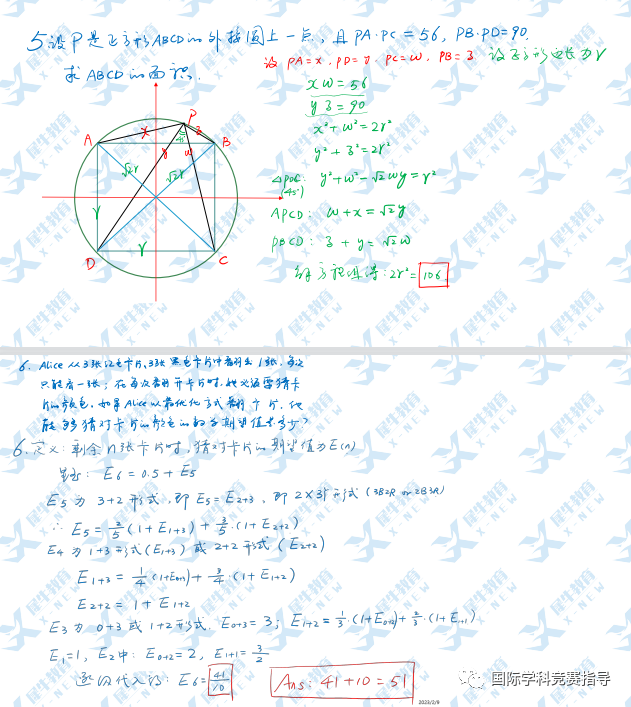 5 设P是正方形ABCD的外接圆上一点，且 PA·PC=56, PB·PD=90.
求 ABCD的面积.
设 PA=x, PD=y, PC=w, PB=z 设正方形边长为r
xw=56
yz=90
x²+w²=2r²
y²+z²=2r²
△PDC: y²+w²-√2wy=r²
(45°)
APCD: w+x=√2y
PBCD: z+y=√2w
解方程组得: 2r²=106
P
A
B
x
z
y
w
√2r
√2r
r
r
D
C
6. Alice 从3张红色卡片、3张黑色卡片中翻开1张, 每次
只能看一张; 在每次翻开卡片时, 她必须要猜卡
片的颜色. 如果Alice以最优化方式翻卡片, 他
能够猜对卡片的颜色的的期望值是多少?
6. 定义: 剩余n张卡片时, 猜对卡片的期望值为E(n)
E₆=0.5+E₅
E₅为 3+2形式, 即E₅=E₂₊₃, 即 2×3形式 (3B2R or 2B3R)
∴ E₅=2/5(1+E₁₊₃)+3/5·(1+E₂₊₂)
E₄为1+3形式(E₁₊₃) 或 2+2形式 (E₂₊₂)
E₁₊₃=1/4·(1+E₀₊₃)+3/4·(1+E₁₊₂)
E₂₊₂=1+E₁₊₂
E₃为 0+3 或 1+2形式. E₀₊₃=3; E₁₊₂=1/3·(1+E₀₊₂)+2/3·(1+E₁₊₁)
E₁=1, E₂中: E₀₊₂=2, E₁₊₁=3/2
逐四代入得: E₆=41/10
Ans: 41+10=51
国际学科竞赛指导
2023/2/9
犀牛教育
X-NEW